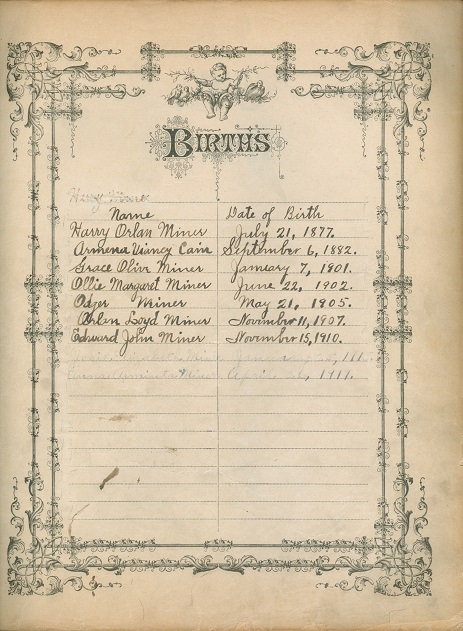 BIRTHS
Harry Miner
Name Date of Birth
Harry Orlan Miner July 21, 1877.
Armena Viancy Cain September 6, 1882.
Grace Olive Miner January 7, 1901.
Ollie Margaret Miner June 22, 1902.
Miner May 21, 1905.
Orlan Loyd Miner November 11, 1907.
Edward John Miner November 15, 1910.
April 1911.